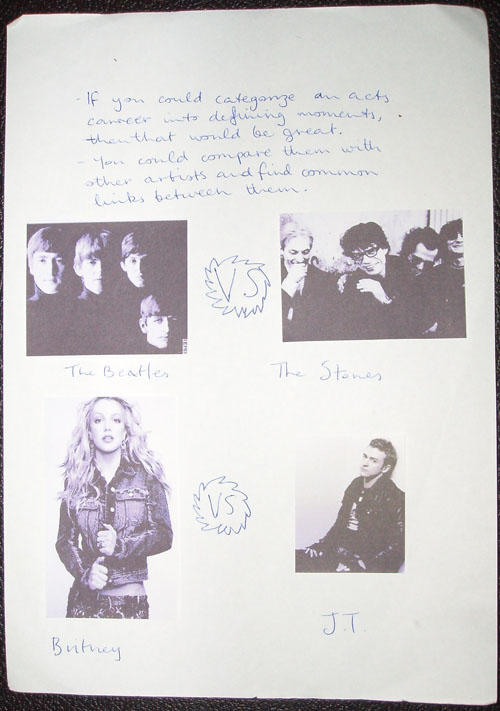 - If you could categorize an acts
career into defining moments,
then that would be great.
- You could compare them with
other artists and find common
links between them.
VS
The Beatles
The Stones
VS
Britney
J.T.